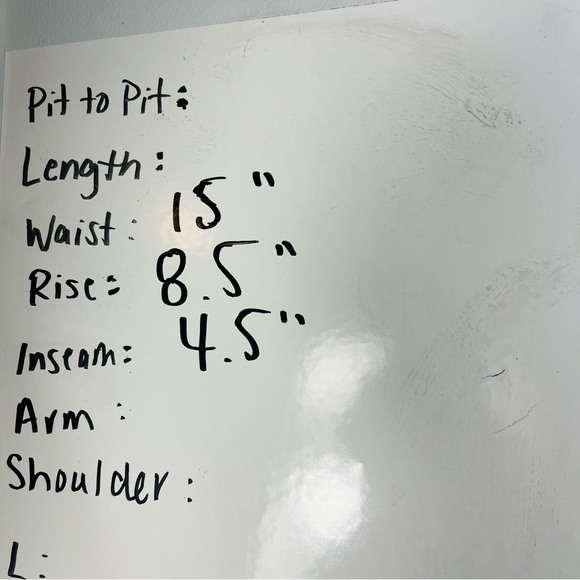 Pit to Pit:
Length:
Waist: 15"
Rise: 8.5"
Inseam: 4.5"
Arm:
Shoulder:
L: